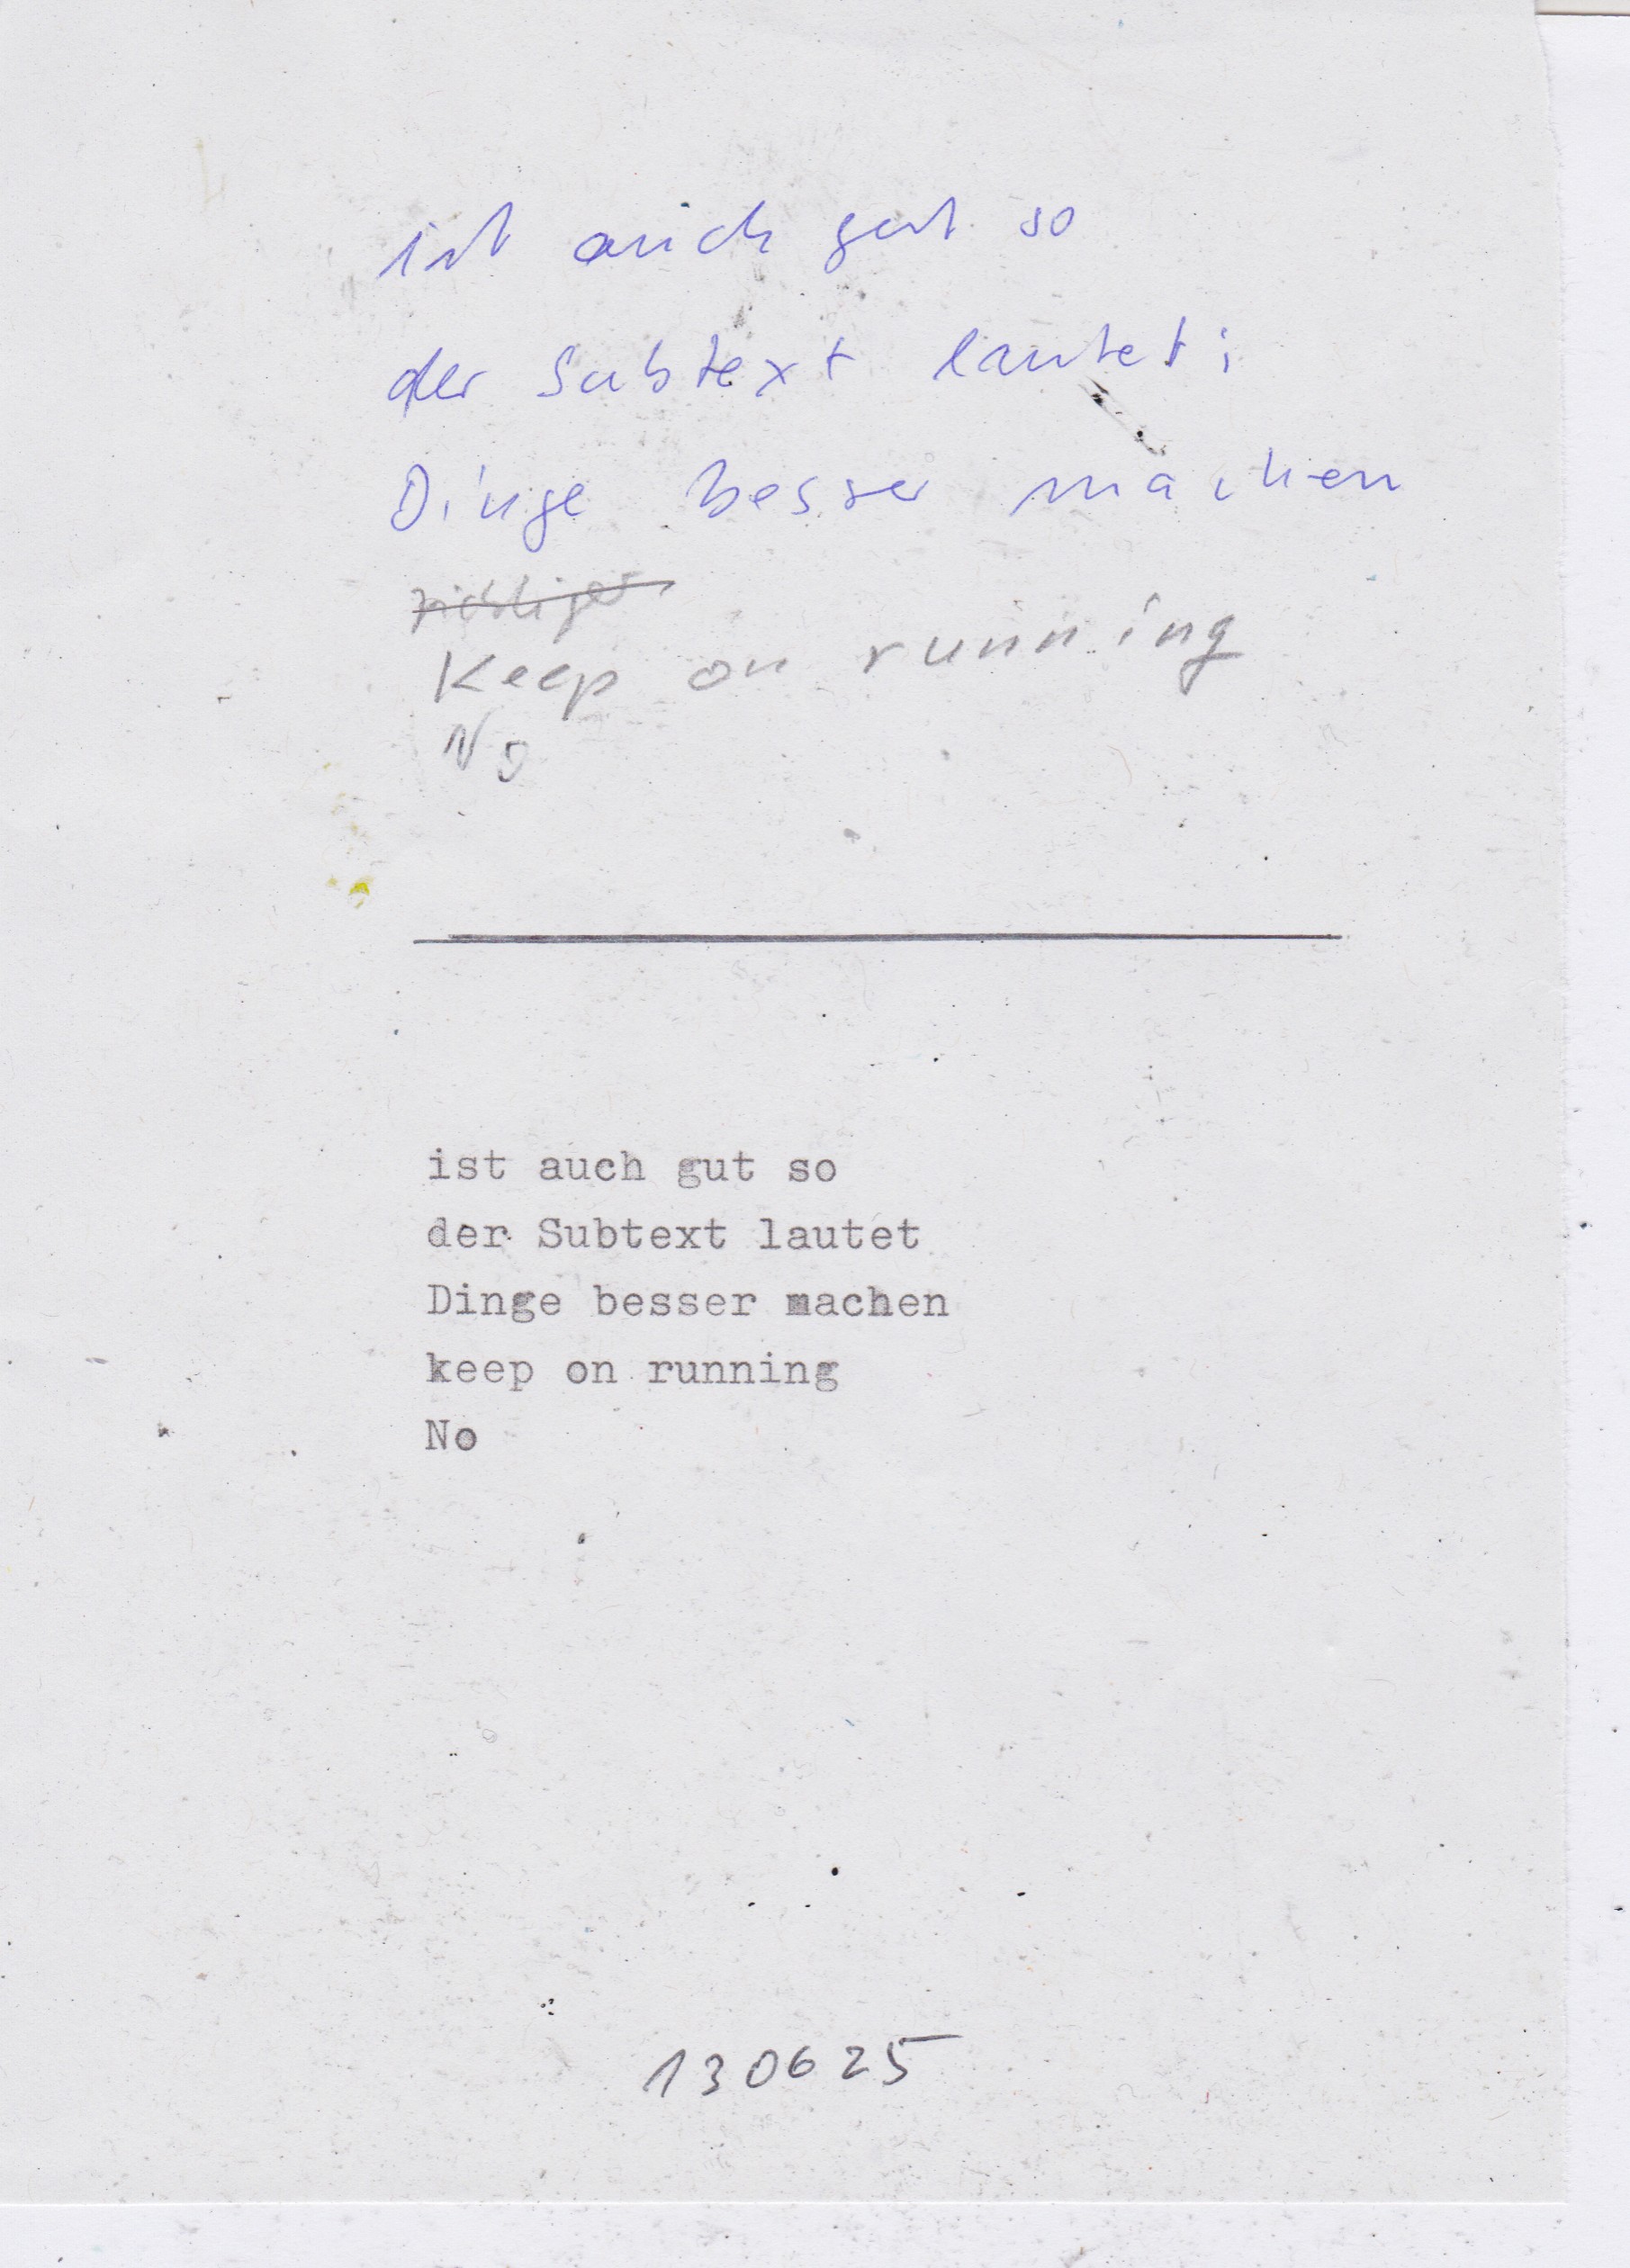 ist auch gut so
der Subtext lautet:
Dinge besser machen
Keep on running
No
ist auch gut so
der Subtext lautet
Dinge besser machen
keep on running
No
130625